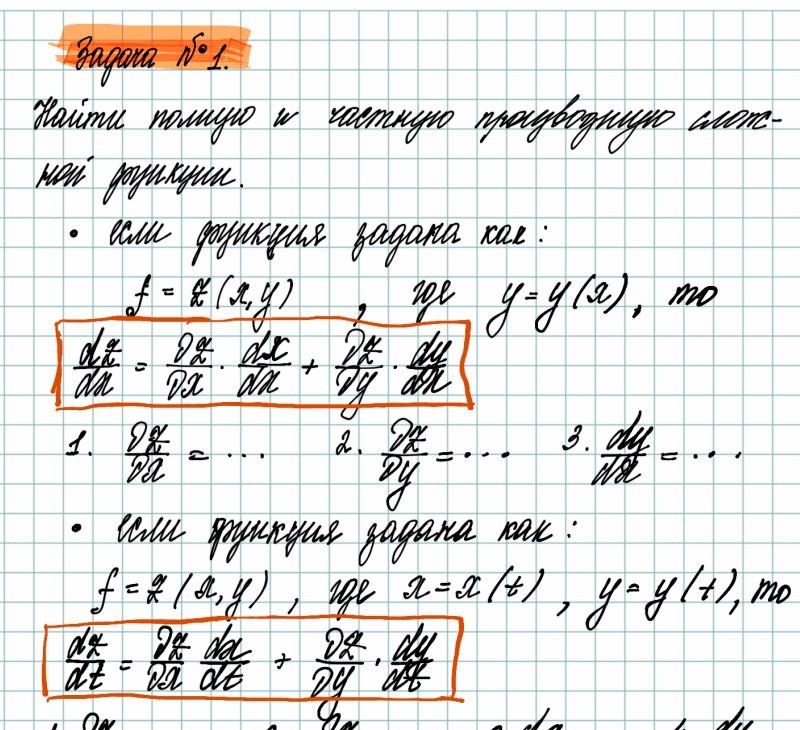 Задача №1.
Найти полную и частную производную слож-
ной функции.
• если функция задана как:
f = z(x,y) , где y = y(x), то
dz/dx = ∂z/∂x · dx/dx + ∂z/∂y · dy/dx
1. ∂z/∂x = ... 2. ∂z/∂y = ... 3. dy/dx = ...
• если функция задана как:
f = z(x,y) , где x = x(t) , y = y(t), то
dz/dt = ∂z/∂x dx/dt + ∂z/∂y · dy/dt